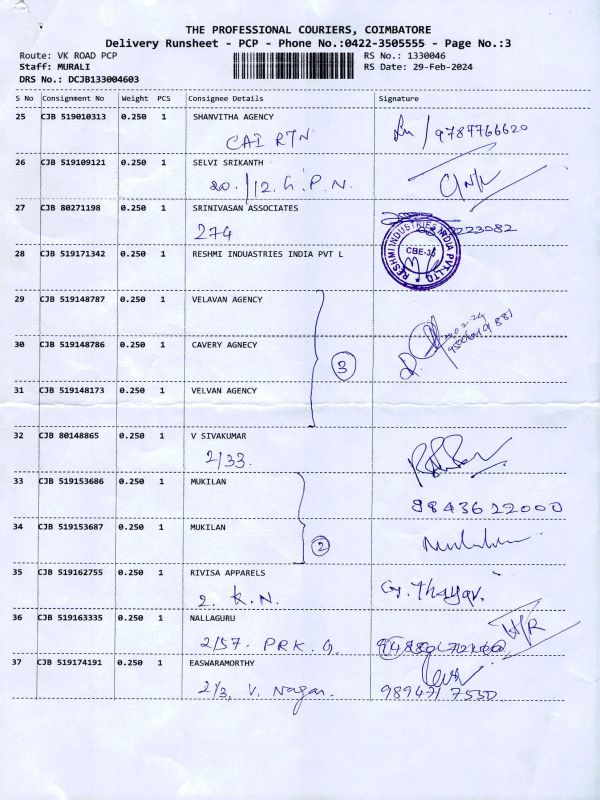 THE PROFESSIONAL COURIERS, COIMBATORE
Delivery Runsheet - PCP - Phone No.:0422-3505555 - Page No.:3
Route: VK ROAD PCP RS No.: 1330046
Staff: MURALI RS Date: 29-Feb-2024
DRS No.: DCJB133004603
S No Consignment No Weight PCS Consignee Details Signature
25 CJB 519010313 0.250 1 SHANVITHA AGENCY
CAI RTN 9787766620
26 CJB 519109121 0.250 1 SELVI SRIKANTH
20./12. G.P.N.
27 CJB 80271198 0.250 1 SRINIVASAN ASSOCIATES
274 223082
28 CJB 519171342 0.250 1 RESHMI INDUASTRIES INDIA PVT L
RESHMI INDUSTRIES INDIA PVT. LTD
CBE-35
29 CJB 519148787 0.250 1 VELAVAN AGENCY
30 CJB 519148786 0.250 1 CAVERY AGNECY
3
31 CJB 519148173 0.250 1 VELVAN AGENCY
32 CJB 80148865 0.250 1 V SIVAKUMAR
2/33.
33 CJB 519153686 0.250 1 MUKILAN
9843622000
34 CJB 519153687 0.250 1 MUKILAN
2
35 CJB 519162755 0.250 1 RIVISA APPARELS
2. K.N. G. Thayav.
36 CJB 519163335 0.250 1 NALLAGURU
2/57. PRK. G. H/R
37 CJB 519174191 0.250 1 EASWARAMORTHY
2/3, V. Nagar. 989471 7550